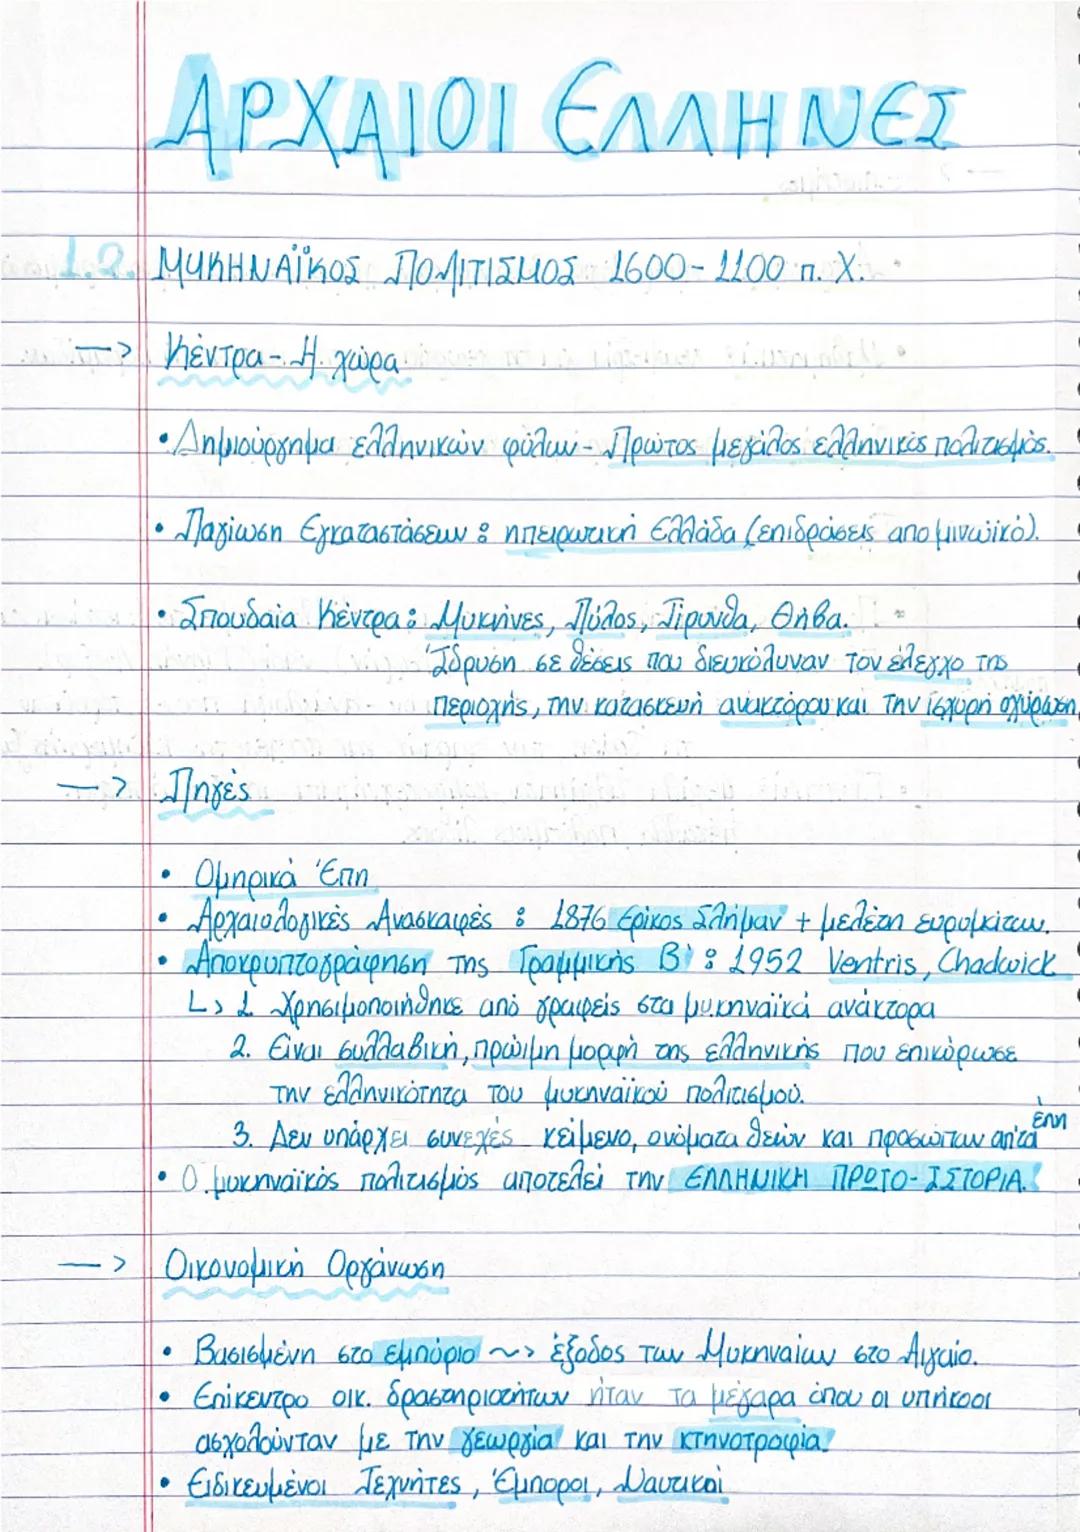 ΑΡΧΑΙΟΙ ΕΛΛΗΝΕΣ
1.2. ΜΥΚΗΝΑΪΚΟΣ ΠΟΛΙΤΙΣΜΟΣ 1600-1100 π. Χ.
—> Κέντρα - Η χώρα
• Δημιούργημα ελληνικών φύλων - Πρώτος μεγάλος ελληνικός πολιτισμός.
• Παγίωση Εγκαταστάσεων : ηπειρωτική Ελλάδα (επιδράσεις από μινωϊκό).
• Σπουδαία Κέντρα : Μυκήνες, Πύλος, Τίρυνθα, Θήβα.
Ίδρυση σε θέσεις που διευκόλυναν τον έλεγχο της
περιοχής, την κατασκευή ανακτόρου και την ισχυρή οχύρωση
—> Πηγές
• Ομηρικά Έπη
• Αρχαιολογικές Ανασκαφές : 1876 Ερίκος Σλήμαν + μελέτη ευρυμάτων.
• Αποκρυπτογράφηση της Γραμμικής Β' : 1952 Ventris, Chadwick
↳ 1. Χρησιμοποιήθηκε από γραφείς στα μυκηναϊκά ανάκτορα
2. Είναι συλλαβική, πρώιμη μορφή της ελληνικής που επικύρωσε
την ελληνικότητα του μυκηναϊκού πολιτισμού.
3. Δεν υπάρχει συνεχές κείμενο, ονόματα θεών και προσώπων απ'τα έπη
• Ο μυκηναϊκός πολιτισμός αποτελεί την ΕΛΛΗΝΙΚΗ ΠΡΩΤΟ-ΙΣΤΟΡΙΑ.
—> Οικονομική Οργάνωση
• Βασισμένη στο εμπόριο ~> έξοδος των Μυκηναίων στο Αιγαίο.
• Επίκεντρο οικ. δραστηριοτήτων ήταν τα μέγαρα όπου οι υπήκοοι
ασχολούνταν με την γεωργία και την κτηνοτροφία.
• Ειδικευμένοι Τεχνήτες, Έμποροι, Ναυτικοί